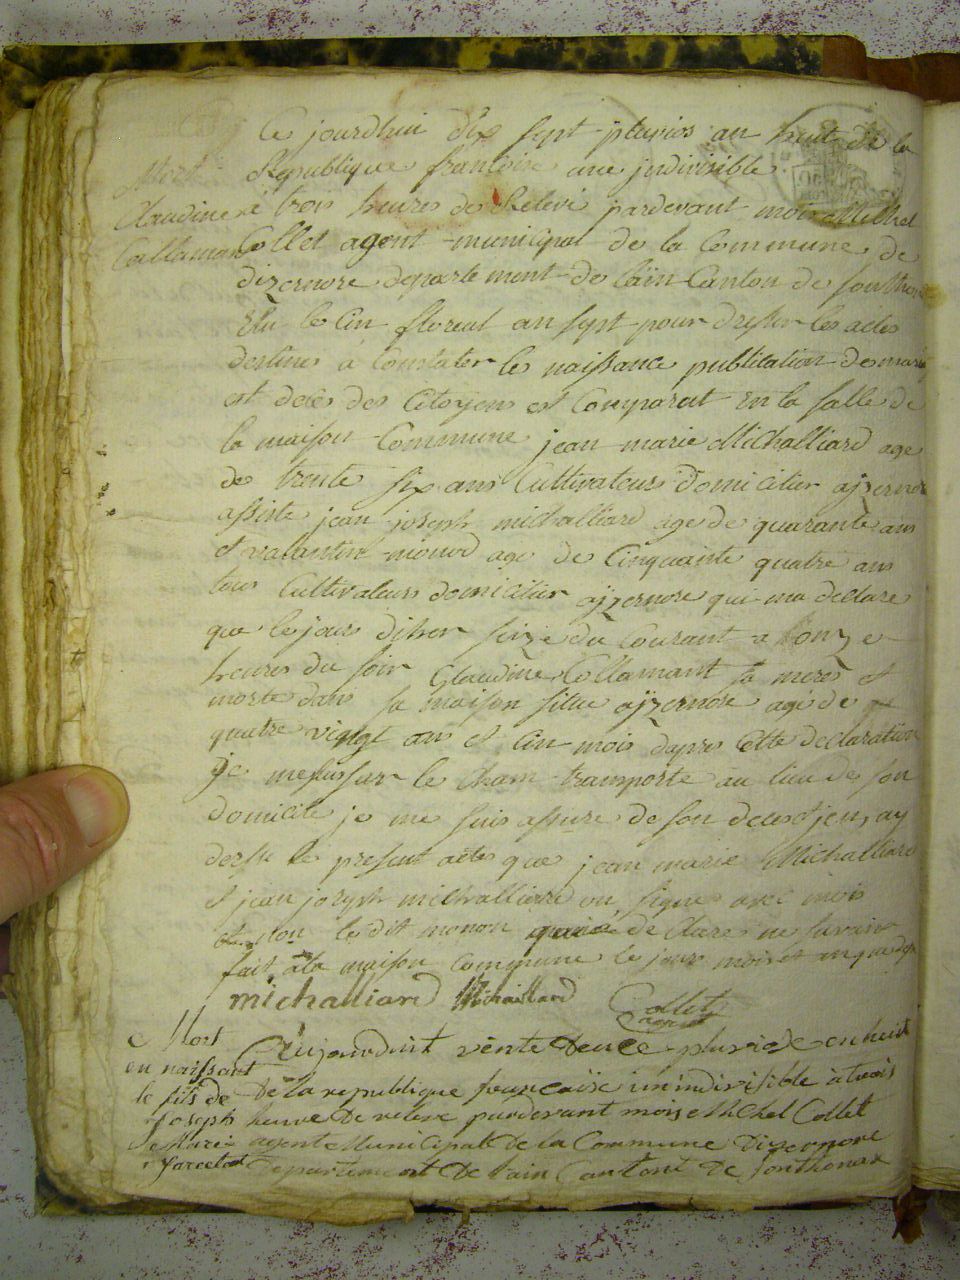 Ce jourdhui dix sept pluvios an huit de la
Mort
Republique francoise une jndivisible
Claudine
a trois heures de Relevé pardevant moi Michel
Collamant
Collet agent municipal de la Commune de
dizernore departement de lain Canton de
Elu le cin floreal an sept pour dresser les actes
destines a Constater les naissance publication de mariag
et deces des Citoyens est Comparut En la salle de
la maison Commune jean marie Michalliard age
de trente six ans Cultivateurs domicilier ajzernore
assiste jean joseph michalliard age de quarante ans
et valantin monod age de Cinquante quatre ans
tous Cultivateurs domicilier ajzernore qui ma declare
que le jours dihier seize du Courant a lonze
heures du soir Claudine Collamant sa mere et
morte dans sa maison situe ajzernore age de
quatre vingt ans et cin mois dapres Cette declaration
je me suis sur le Cham transporte au lieu de son
domicile je me suis assure de son deces jen ay
dresse le present acte que jean marie Michalliard
et jean joseph michalliard on signe avec mois
et non le dit monon de Clare ne savoir
fait a la maison Commune le jour mois et an que dessus
michalliard Michalliard Collet
agent
Mort
en naissant
le fils de
joseph
Marie
farcetat
Aujourduit vente deuce pluviose en heuit
De la republique francaise un indivisible a trois
heure De releve pardevant mois Michel Collet
agent Municipal De la Commune Dizernore
Departement De lain Cantont De Sonthonax